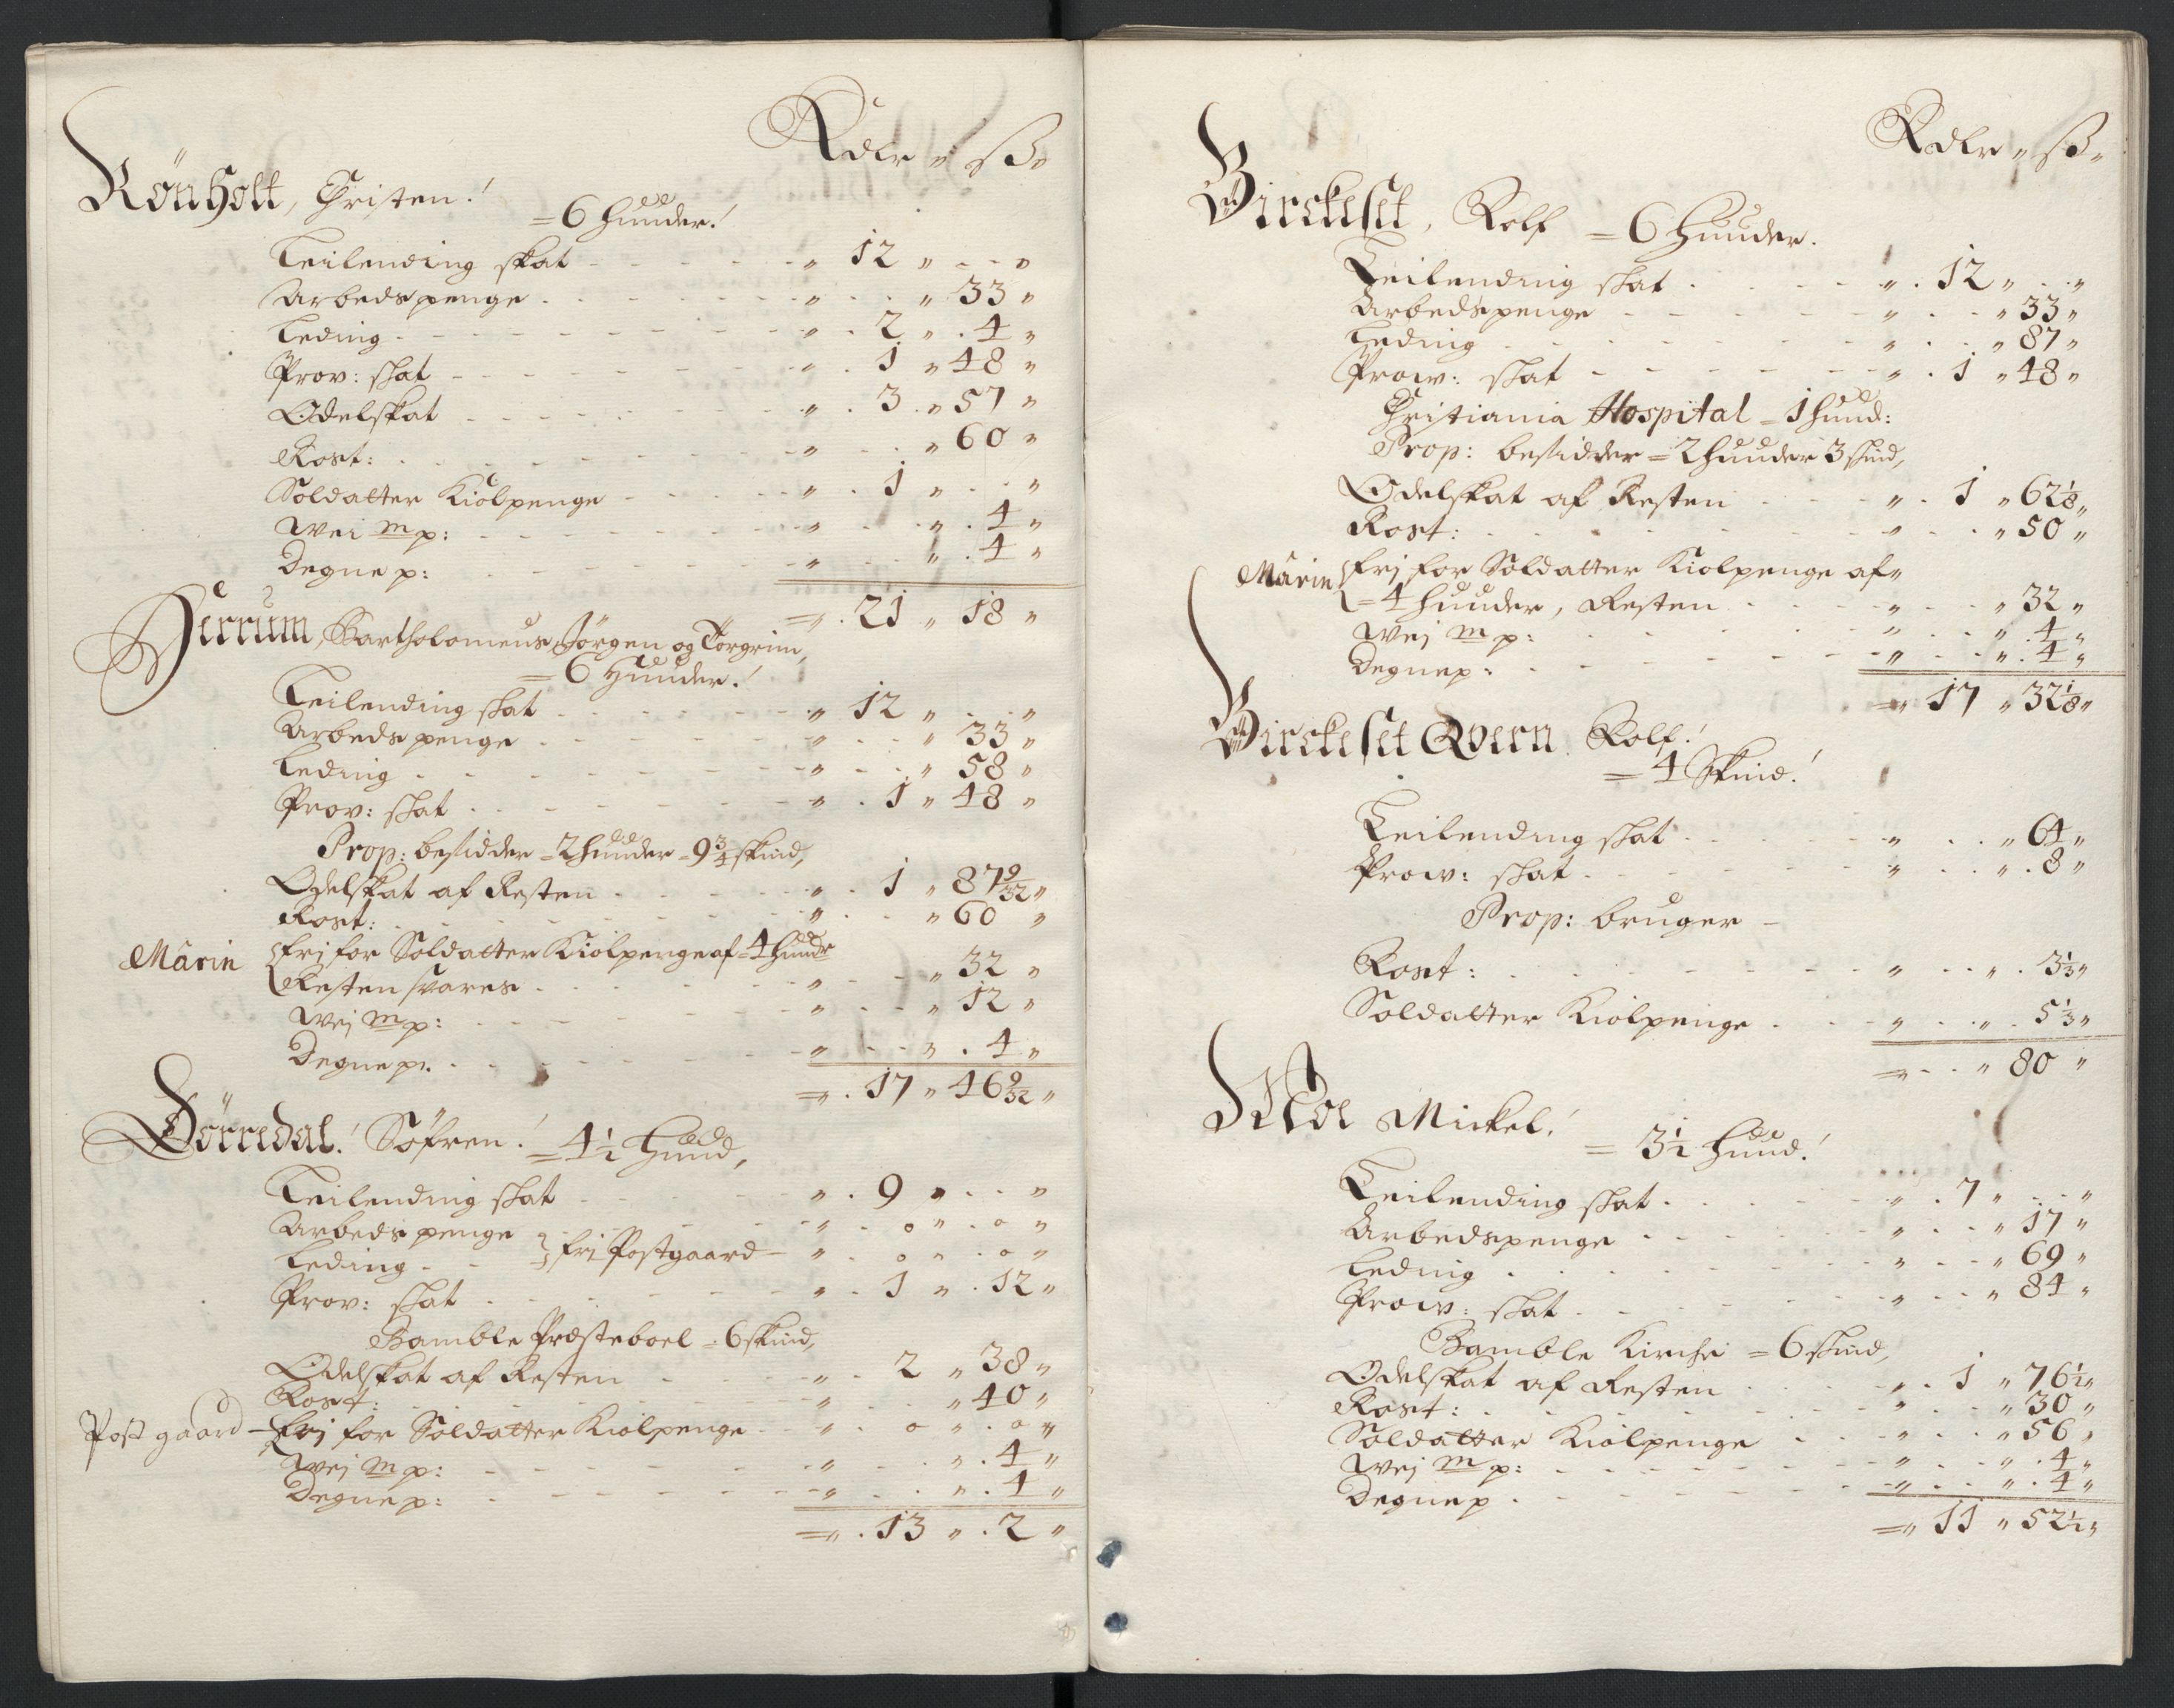 Rdlr " ß "
Rönholt, Christen!
= 6 huuder!
Leilending skat - - - " 12 " - - "
Arbeds penge - - - " - - " 33 "
Leding - - - " 2 " 4 "
Prov: skat - - - " 1 " 48 "
Odelskat - - - " 3 " 57 "
Rost: - - - " - " 60 "
Soldatter Kiolpenge - - - " 1 " - "
Wei m p: - - - " - " 4 "
Degne p: - - - " - " 4 "
= " 21 " 18 "
Herrum, Bartholomeus, Jörgen og Torgrim,
= 6 Huuder!
Leilending skat - - - " 12 " - "
Arbeds penge - - - " - " 33 "
Leding - - - " - " 58 "
Prov: skat - - - " 1 " 48 "
Prop: besidder = 2 huuder = 9 3/4 skind,
Odelskat af Resten - - - " 1 " 87 9/32 "
Rost: - - - " - " 60 "
Marin fri for Soldatter Kiolpenge af = 4 huudr
Resten svares - - - " - " 32 "
Wei m p: - - - " - " 12 "
Degne p: - - - " - " 4 "
= " 17 " 46 9/32 "
Dörredal! Söfren! = 4 1/2 Huud,
Leilending skat - - - " 9 " - "
Arbeds penge - - - " o " o "
Leding - - fri Postgaard - " o " o "
Prov: skat - - - " 1 " 12 "
Bamble Præsteboel = 6 skind,
Odelskat af Resten - - - " 2 " 38 "
Rost: - - - " - " 40 "
Post gaard - fri for Soldatter Kiolpenge - " o " o "
Wei m p: - - - " - " 4 "
Degne p: - - - " - " 4 "
= " 13 " 2 "
Rdlr " ß "
Birckeset, Rolf = 6 Huuder.
Leilending skat - - - " 12 " - "
Arbedspenge - - - " - " 33 "
Leding - - - " - " 87 "
Prow: skat - - - " 1 " 48 "
Christiania Hospital = 1 huud:
Prop: besidder = 2 huuder 3 skind,
Odelskat af Resten - - - " 1 " 62 1/8 "
Rost: - - - " - " 50 "
Marin fri for Soldatter Kiolpenge af "
= 4 huuder, Resten - - - " - " 32 "
Wei m p: - - - " - " 4 "
Degne p: - - - " - " 4 "
= " 17 " 32 1/8 "
Birckeset Qvern Rolf!
= 4 Skind!
Leilending skat - - - " - " 64 "
Prow: skat - - - " - " 8 "
Prop: bruger -
Rost: - - - " - " 3 1/3 "
Soldatter Kiolpenge - - - " - " 5 1/3 "
= " - " 80 "
Moe Mickel!
= 3 1/2 huud!
Leilending skat - - - " 7 " - "
Arbedspenge - - - " - " 17 "
Leding - - - " - " 69 "
Prow: skat - - - " - " 84 "
Bamble Kirche = 6 skind,
Odelskat af Resten - - - " 1 " 76 1/2 "
Rost: - - - " - " 30 "
Soldatter Kiolpenge - - - " - " 56 "
Wei m p: - - - " - " 4 "
Degne p - - - " - " 4 "
= " 11 " 52 1/2 "